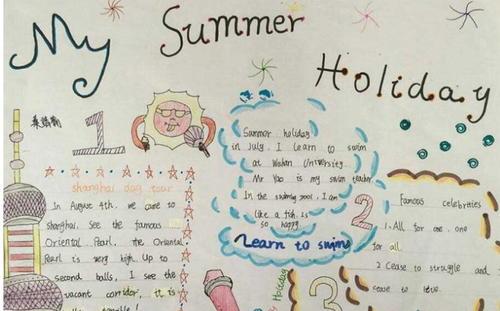 My Summer Holiday
1
shanghai day tour
In August 4th, we come to
Shanghai. See the famous
Oriental Pearl, the Oriental
Pearl is very high. Up to
second balls, I see the
vacant corridor, it is
Summer holiday
in July. I lean to swim
at Wuhan University.
Mr Yao is my swim teacher.
In the swimming pool, I am
like a fish is
so happy.
Learn to swim
2
Famous celebrities
1. All for one, one
for all.
2 Cease to struggle and
cease to leve.
3
Holiday